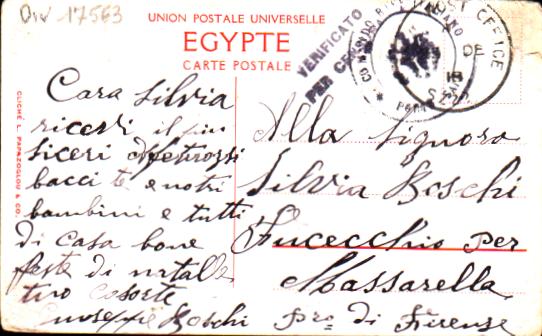 Div 17563
UNION POSTALE UNIVERSELLE
EGYPTE
CARTE POSTALE
VERIFICATO
PER CENSURA
POST OFFICE
DE
18
CLICHÉ L. PAPAZOGLOU & CO.
Cara Silvia
ricevi il piu
siceri Afetuossi
bacci te e notri
bambini e tutti
di casa bone
feste di natalle
tuo cosorte
Giuseppie Boschi
Alla Signora
Silvia Boschi
Fucecchio per
Massarella
Pro di Firenze